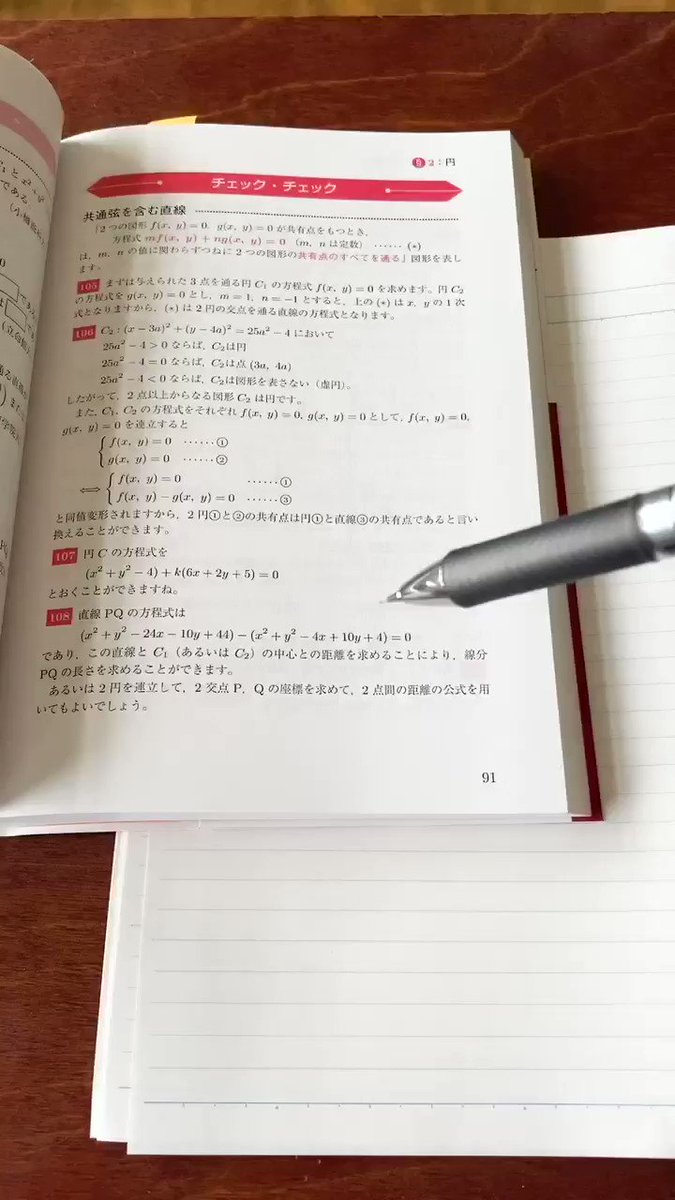 2：円
チェック・チェック
共通弦を含む直線
「2つの図形 f(x, y)=0, g(x, y)=0 が共有点をもつとき，
方程式 mf(x, y)+ng(x, y)=0 （m, n は定数） ……(*)
は，m, n の値に関わらずつねに2つの図形の共有点のすべてを通る」図形を表し
ます。
105 まずは与えられた3点を通る円 C₁ の方程式 f(x, y)=0 を求めます。円 C₂
の方程式を g(x, y)=0 とし，m=1, n=−1 とすると，上の(*)は x, y の1次
式となりますから，(*)は2円の交点を通る直線の方程式となります。
106 C₂ : (x−3a)²+(y−4a)²=25a²−4 において
25a²−4>0 ならば，C₂は円
25a²−4=0 ならば，C₂は点 (3a, 4a)
25a²−4<0 ならば，C₂は図形を表さない（虚円）。
したがって，2点以上からなる図形 C₂ は円です。
また，C₁, C₂ の方程式をそれぞれ f(x, y)=0, g(x, y)=0 として，f(x, y)=0,
g(x, y)=0 を連立すると
f(x, y)=0 ……①
g(x, y)=0 ……②
⟺ f(x, y)=0 ……①
f(x, y)−g(x, y)=0 ……③
と同値変形されますから，2円①と②の共有点は円①と直線③の共有点であると言い
換えることができます。
107 円 C の方程式を
(x²+y²−4)+k(6x+2y+5)=0
とおくことができますね。
108 直線 PQ の方程式は
(x²+y²−24x−10y+44)−(x²+y²−4x+10y+4)=0
であり，この直線と C₁（あるいは C₂）の中心との距離を求めることにより，線分
PQ の長さを求めることができます。
あるいは2円を連立して，2交点 P，Q の座標を求めて，2点間の距離の公式を用
いてもよいでしょう。
91